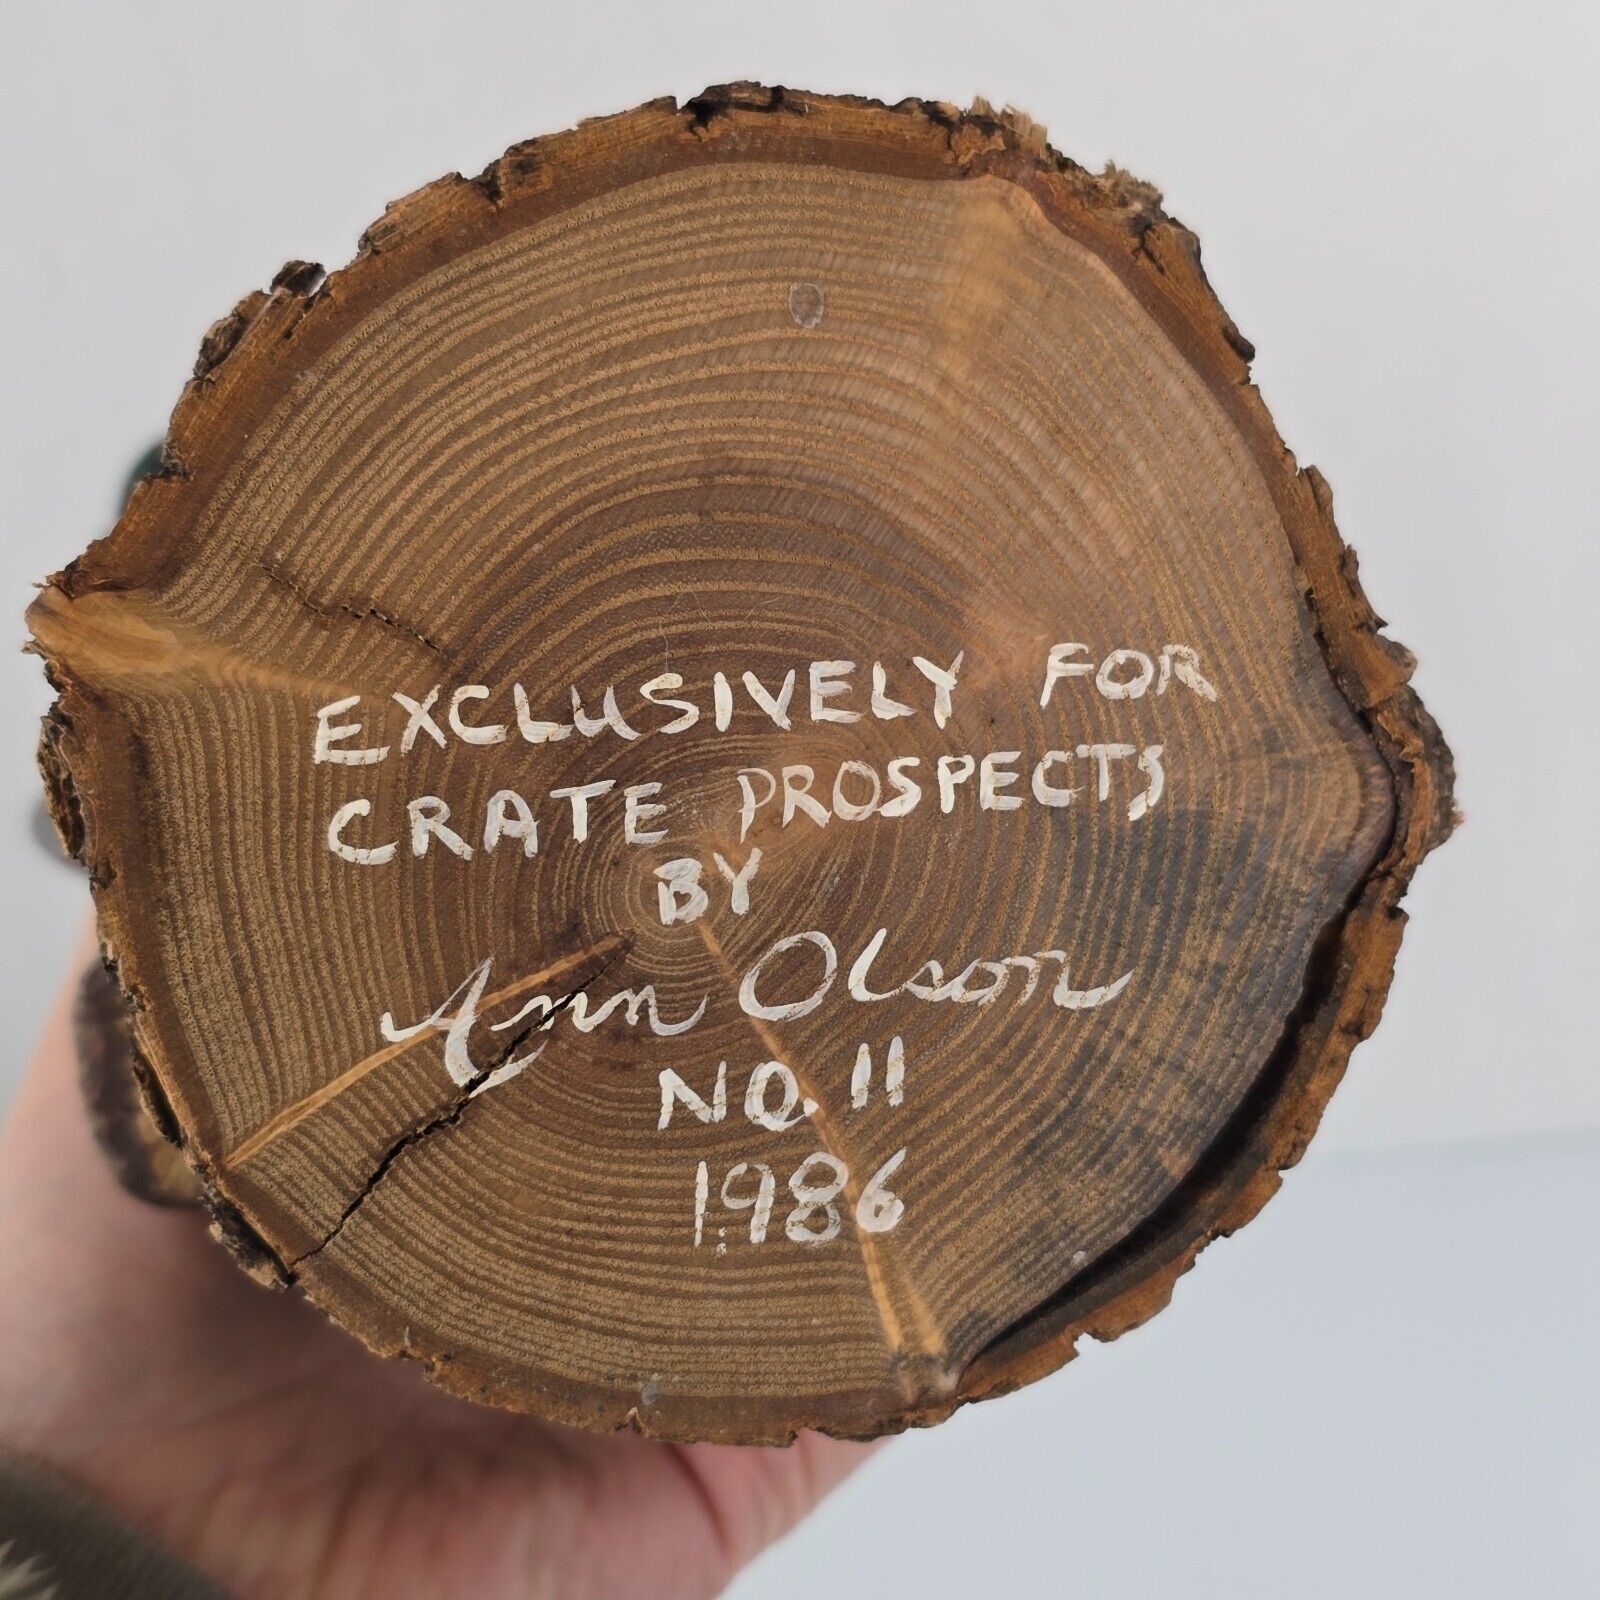 EXCLUSIVELY FOR
CRATE PROSPECTS
BY
Ann Olson
NO. 11
1986